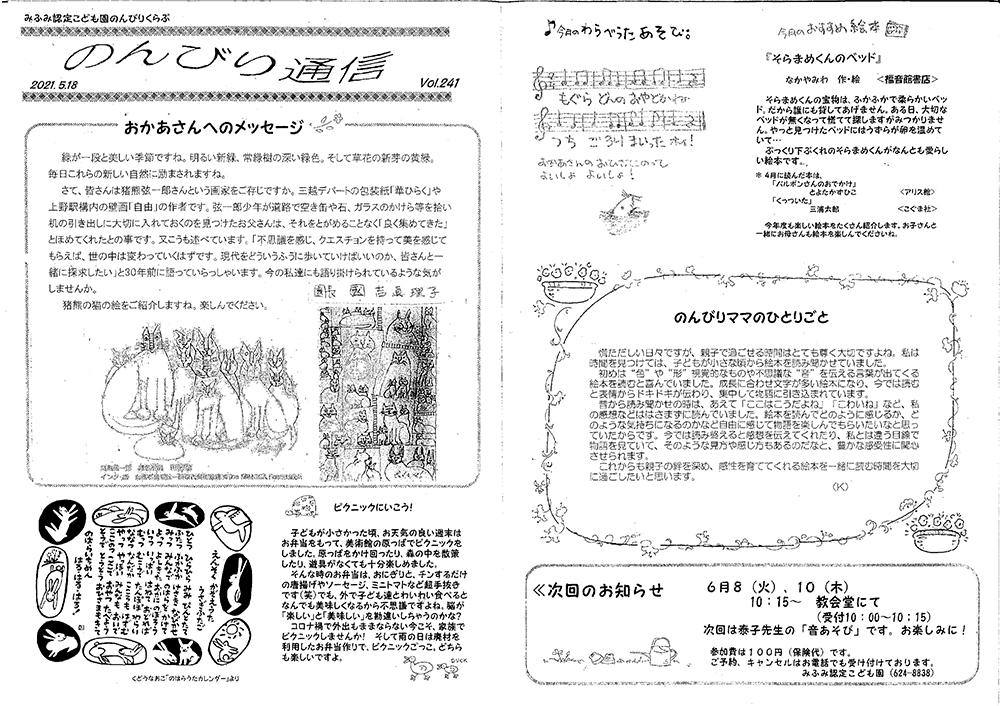 みふみ認定こども園のんびりくらぶ
のんびり通信
2021. 5.18
Vol.241
おかあさんへのメッセージ
緑が一段と美しい季節ですね。明るい新緑、常緑樹の深い緑色。そして草花の新芽の黄緑。
毎日これらの新しい自然に励まされますね。
さて、皆さんは猪熊弦一郎さんという画家をご存じですか。三越デパートの包装紙「華ひらく」や
上野駅構内の壁画「自由」の作者です。弦一郎少年が道路で空き缶や石、ガラスのかけら等を拾い
机の引き出しに大切に入れておくのを見つけたお父さんは、それをとがめることなく「良く集めてきた」
とほめてくれたとの事です。又こうも述べています。「不思議を感じ、クエスチョンを持って美を感じて
もらえば、世の中は変わっていくはずです。現代をどういうふうに歩いていけばいいのか、皆さんと一
緒に探求したい」と30年前に語っていらっしゃいます。今の私達にも語り掛けられているような気が
しませんか。
猪熊の猫の絵をご紹介しますね。楽しんでください。
園長
理子
のはらいちめん
はるのはる
うさぎふたご
くどうなおこ「のはらうたカレンダー」より
ピクニックにいこう!
子どもが小さかった頃、お天気の良い週末は
お弁当をもって、美術館の原っぱでピクニックを
しました。原っぱをかけ回ったり、森の中を散策
したり、遊具がなくても十分楽しめました。
そんな時のお弁当は、おにぎりと、チンするだけ
の唐揚げやソーセージ、ミニトマトなど超手抜き
です(笑)でも、外で子ども達とわいわい食べると
なんでも美味しくなるから不思議ですよね。脳が
「楽しい」と「美味しい」を勘違いしちゃうのかな?
コロナ禍で外出もままならない今こそ、家族で
ピクニックしませんか! そして雨の日は廃材を
利用したお弁当作りで、ピクニックごっこ。どちら
も楽しいですよ。
DUCK
♪今月のわらべうたあそび。
もぐら どんの おやどかね
つち ごろり まいった ホイ!
おかあさんの おひざにのって
よいしょ よいしょ!
今月のおすすめ絵本
『そらまめくんのベッド』
なかやみわ 作・絵 <福音館書店>
そらまめくんの宝物は、ふかふかで柔らかいベッ
ド。だから誰にも貸してあげません。ある日、大切な
ベッドが無くなって慌てて探しますがみつかりませ
ん。やっと見つけたベッドにはうずらが卵を温めて
いて…
ぷっくり下ぶくれのそらまめくんがなんとも愛らし
い絵本です。
※ 4月に読んだ本は、
「バルボンさんのおでかけ」
とよたかずひこ <アリス館>
「くっついた」
三浦太郎 <こぐま社>
今年度も楽しい絵本をたくさん紹介します。お子さんと
一緒にお母さんも絵本を楽しんでくださいね。
のんびりママのひとりごと
慌ただしい日々ですが、親子で過ごせる時間はとても尊く大切ですよね。私は
時間を見つけては、子どもが小さな頃から絵本を読み聞かせていました。
初めは“色”や“形”視覚的なものや不思議な“音”を伝える言葉が出てくる
絵本を読むと喜んでいました。成長に合わせ文字が多い絵本になり、今では読む
と表情からドキドキが伝わり、集中して物語に引き込まれています。
昔から読み聞かせの時は、あえて「ここはこうだよね」「こわいね」など、私
の感想などははさまずに読んでいました。絵本を読んでどのように感じるか、ど
のような気持ちになるのかなど自由に感じて物語を楽しんでもらいたいなと思っ
ていたからです。今では読み終えると感想を伝えてくれたり、私とは違う目線で
物語を見ていて、そのような見方や感じ方もあるのだなと、豊かな感受性に驚か
させられます。
これからも親子の絆を深め、感性を育ててくれる絵本を一緒に読む時間を大切
に過ごしたいと思います。
(K)
≪次回のお知らせ
6月8(火)、10(木)
10:15~ 教会堂にて
(受付10:00~10:15)
次回は泰子先生の「音あそび」です。お楽しみに!
参加費は100円(保険代)です。
ご予約、キャンセルはお電話でも受け付けております。
みふみ認定こども園(624-8838)